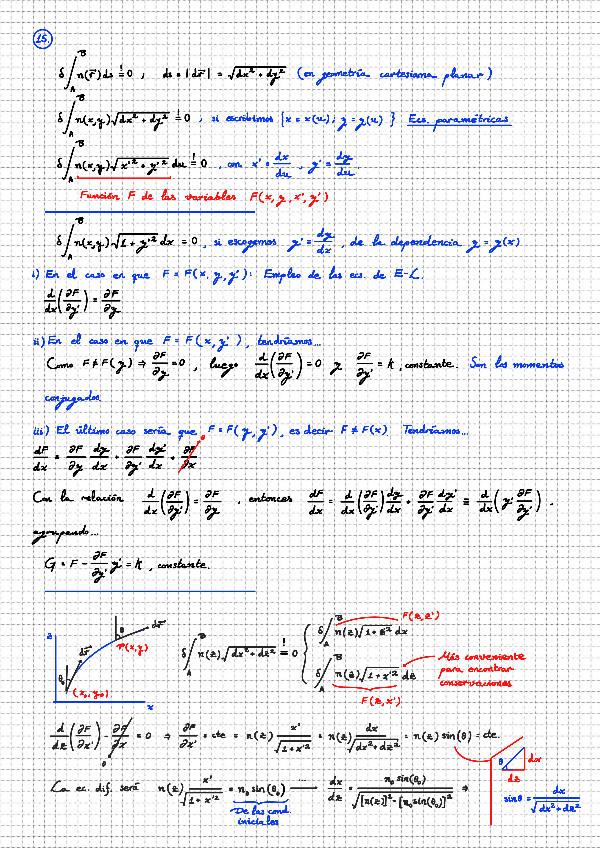 15.
δ∫_A^B n(r⃗) ds != 0 , ds = |dr⃗| = √(dx² + dy²) (en geometría cartesiana planar)
δ∫_A^B n(x,y) √(dx² + dy²) != 0 , si escribimos {x = x(u) ; y = y(u)} Ecs. paramétricas
δ∫_A^B n(x,y) √(x'² + y'²) du != 0 , con x' = dx/du , y' = dy/du.
Función F de las variables F(x, y, x', y')
δ∫_A^B n(x,y) √(1 + y'²) dx = 0 , si escogemos y' = dy/dx , de la dependencia y = y(x)
i) En el caso en que F = F(x, y, y'): Empleo de las ecs. de E-L.
d/dx (∂F/∂y') = ∂F/∂y
ii) En el caso en que F = F(x, y') , tendríamos...
Como F ≠ F(y) ⇒ ∂F/∂y = 0 , luego d/dx (∂F/∂y') = 0 y ∂F/∂y' = k , constante. Son los momentos
conjugados
iii) El último caso sería que F = F(y, y') , es decir F ≠ F(x) Tendríamos...
dF/dx = ∂F/∂y dy/dx + ∂F/∂y' dy'/dx + ∂F/∂x 0
Con la relación d/dx (∂F/∂y') = ∂F/∂y , entonces dF/dx = d/dx (∂F/∂y') dy/dx + ∂F/∂y' dy'/dx ≡ d/dx (y' ∂F/∂y') .
agrupando...
G = F - ∂F/∂y' y' = k , constante.
z
θ₀
dr⃗
θ
dr⃗
P(x,y)
(x₀, y₀)
x
δ∫_A^B n(z) √(dx² + dz²) != 0
δ∫_A^B n(z) √(1 + z'²) dx
F(z, z')
δ∫_A^B n(z) √(1 + x'²) dz
F(z, x')
Más conveniente
para encontrar
conservaciones
d/dz (∂F/∂x') - ∂F/∂x = 0 ⇒ ∂F/∂x' = cte = n(z) x'/√(1 + x'²) = n(z) dx/√(dx² + dz²) = n(z) sin(θ) = cte.
0
La ec. dif. será n(z) x'/√(1 + x'²) = n₀ sin(θ₀) ⟶ dx/dz = n₀ sin(θ₀)/√([n(z)]² - [n₀ sin(θ₀)]²) ⇒
De las cond.
iniciales
θ
dx
dz
sinθ = dx/√(dx² + dz²)